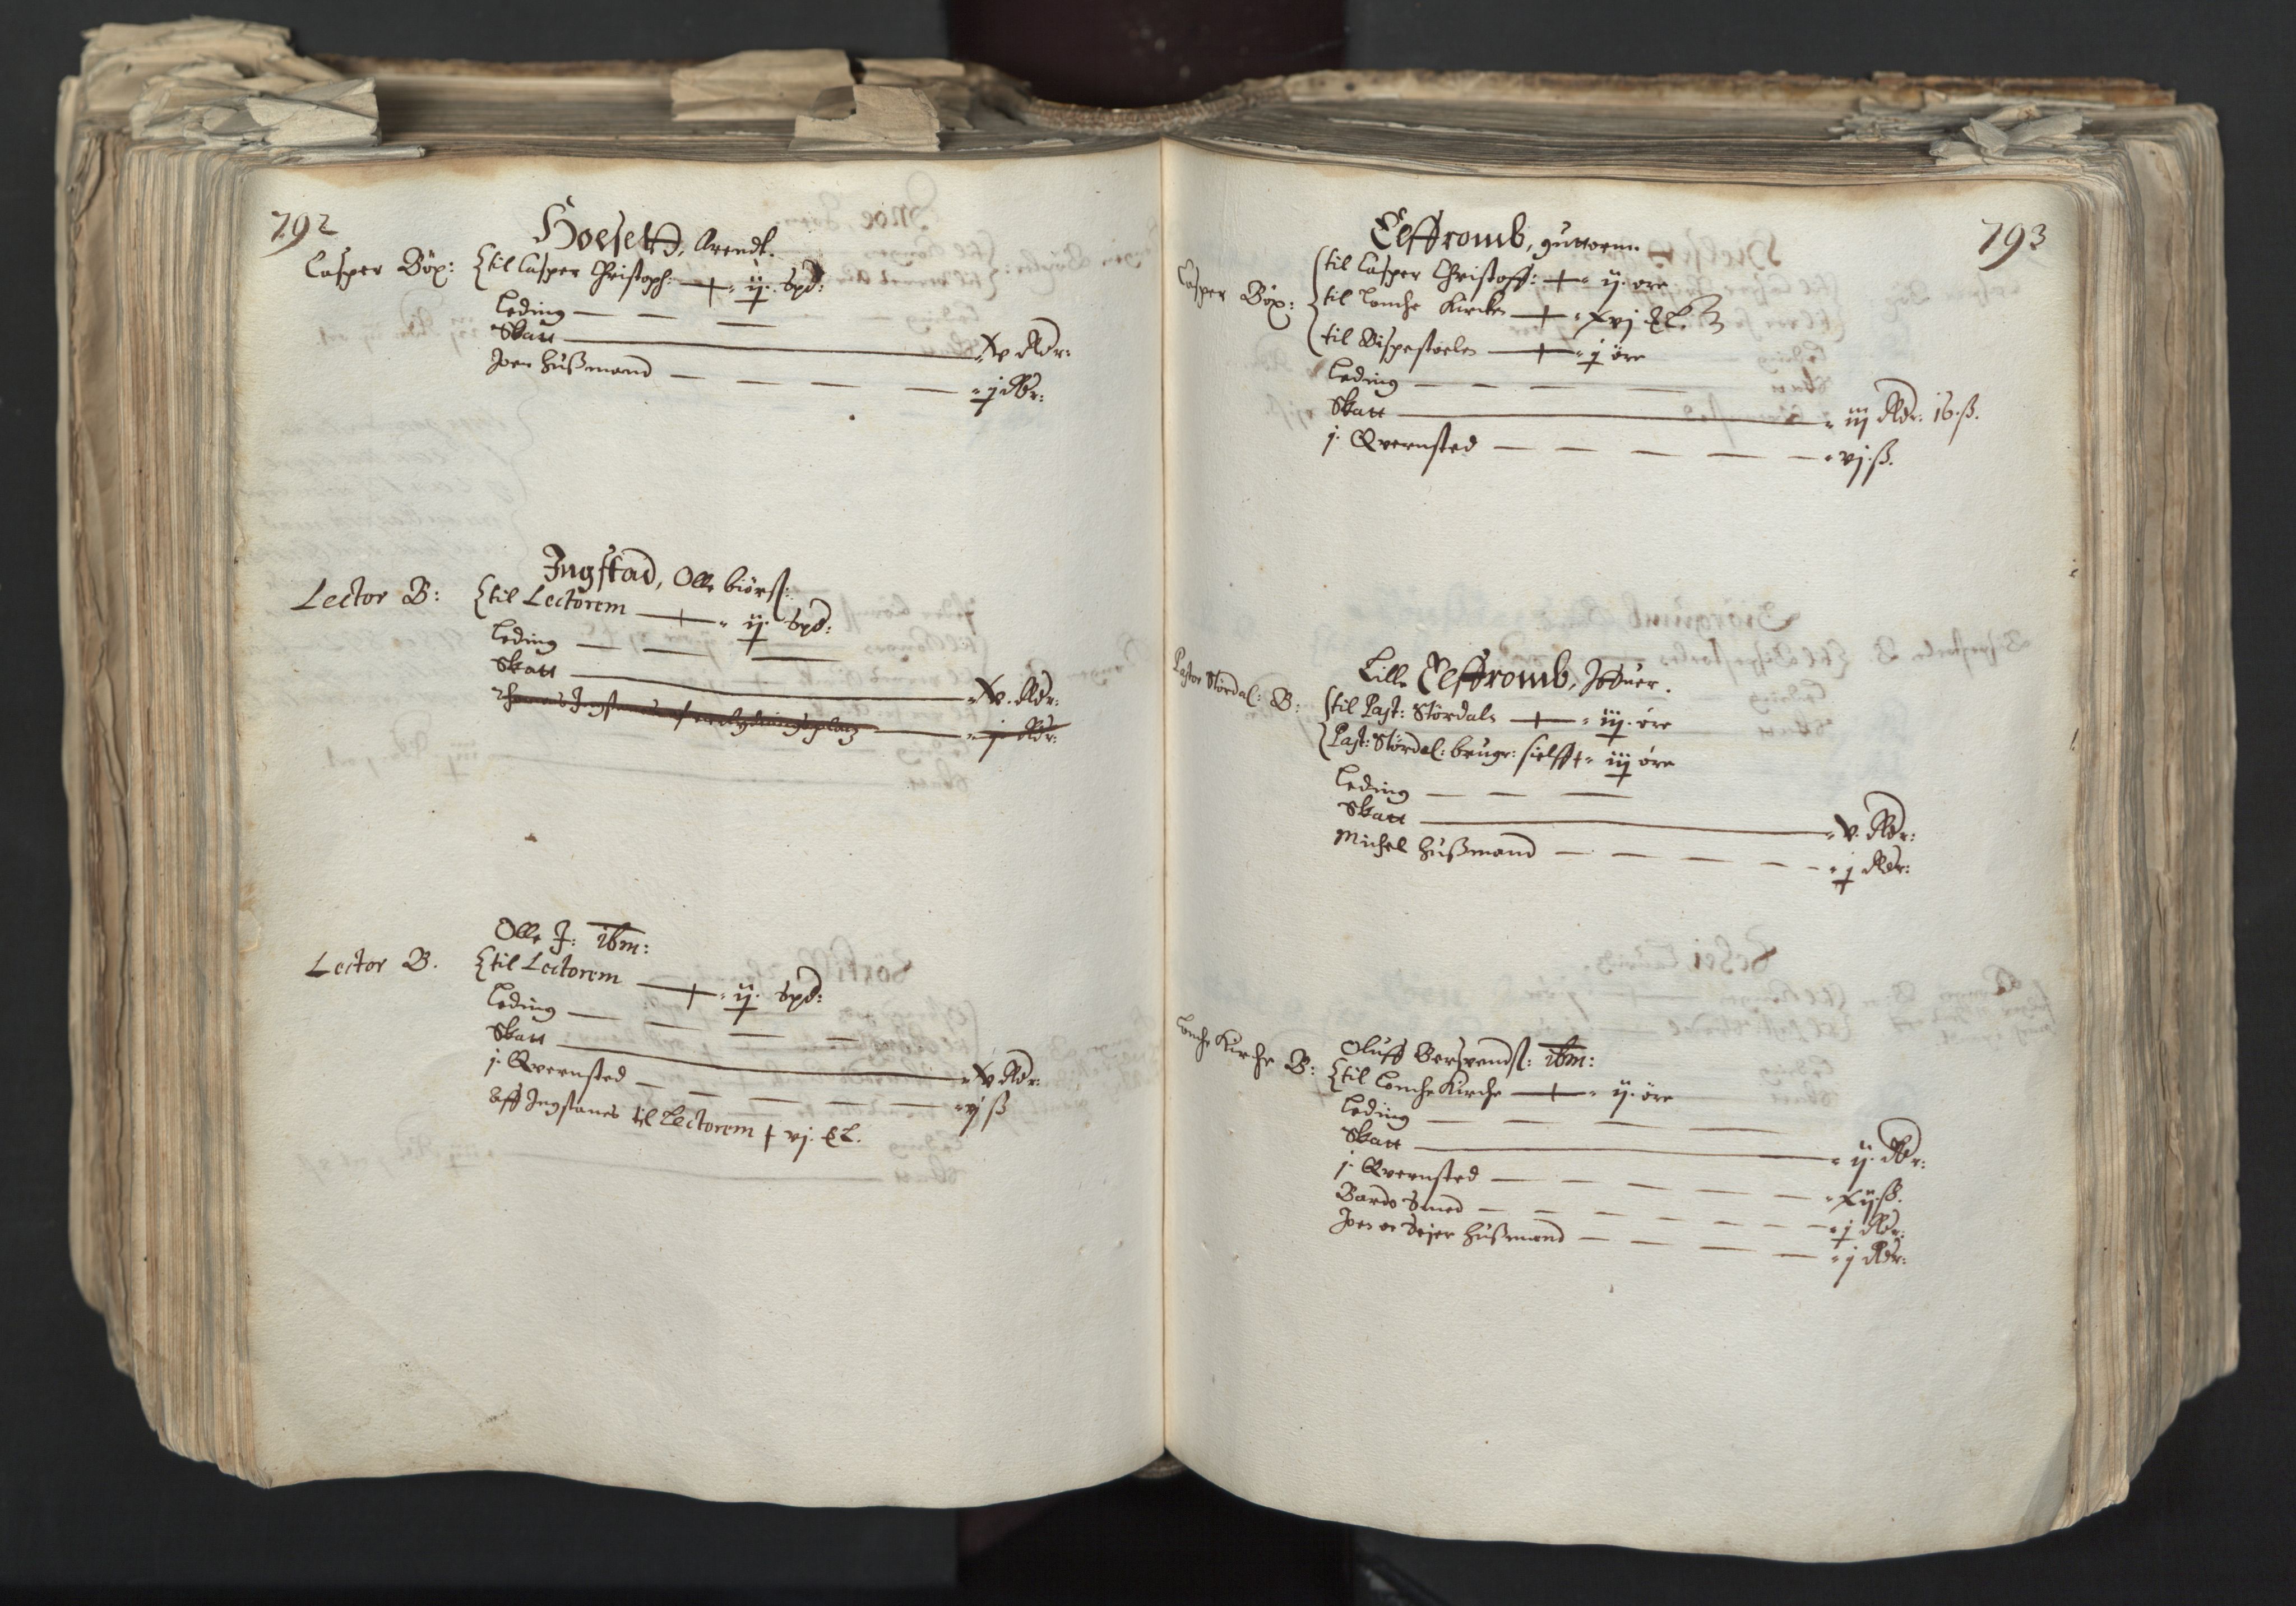 792
Hoesett, Arendt.
Casper Böx: {til Casper Christoph: + ij. Spd:
Leding
Skatt v Rdr:
Joen Hußmand j Rdr:
Ingstad, Olle biörs:
Lector B: {til Lectorem + ij. Spd:
Leding
Skatt v. Rdr:
j Rdr:
Olle J: ibm:
Lector B. {til Lectorem + ij. Spd:
Leding
Skatt v Rdr:
j. Qvernsted vj ß
Aff Ingstanes til Lectorem + vj. EL.
793
Elffromb, guttorm.
Casper Böx: {til Casper Christoff: + ij. öre
til Lonche Kircke + xvj EL.
til Bispestoelen + j öre
Leding
Skatt iij Rdr. 16. ß.
j. Qvernsted vj. ß.
Lille Elffromb, Iffuer.
Pastor Stördal: B: {til Past: Stördals + iij. öre
Past: Stördal: bruger sielff + iij öre
Leding
Skatt v. Rdr:
Michel Hußmand j Rdr:
Oluff Berswends: ibm:
Lonche Kirche B: {til Lonche Kirche + ij. öre
Leding
Skatt ij. Rdr:
j. Qvernsted xij ß.
Bardo Smed j Rdr:
Joen oc Sejer Hußmand j Rdr: